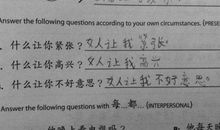 Answer the following questions according to your own circumstances. (PRESE
什么让你紧张？女人让我紧张。
什么让你高兴？女人让我高兴
什么让你不好意思？女人让我不好意思。
Answer the following questions with 每…都… (INTERPERSONAL)